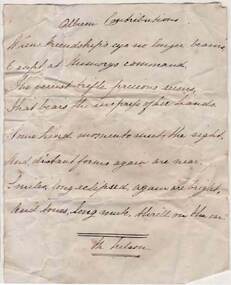 Album Contributions.
When friendship's eye no longer beams
Except at Memory's command,
The veriest trifle precious seems
That bears the impress of her hand.
Some kind memento meets the sight,
And distant forms again are near,
Smiles, long eclipsed, again are bright,
And tones, long mute, thrill on the ear.
Wilson